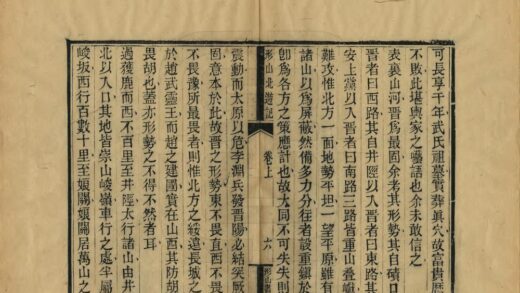 可長享千年武氏祖墓實葬眞穴故富貴歷
不敗此堪輿家之囈語也余未敢信之
表裏山河晉爲最固余考其形勢其自磧口
晉者曰西路其自井陘以入晉者曰東路其
安上黨以入晉者曰南路三路皆重山疊嶂
難攻惟北方一面地勢平坦一望平原雖有
諸山以爲屏蔽然備多力分往者設重鎭於
卽爲各方之策應計也故大同不可失失則
形山北遊記 卷上 六
震動而太原以危李淵兵發晉陽必結突厥
固意本於此故晉之形勢東不畏直西不畏
不畏豫所最畏者則惟北方之綏遠長城之
於趙武靈王而趙之建國實在山西其防胡
畏胡也蓋亦形勢之不得不然者耳
過獲鹿而西不百里至井陘太行諸山由井
北以入口其地皆崇山峻嶺車行之處半屬
峻坂西行百數十里至娘關娘關居萬山之